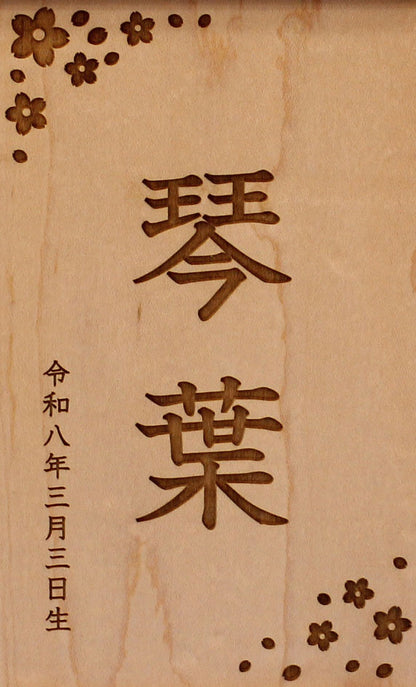 琴葉
令和八年三月三日生